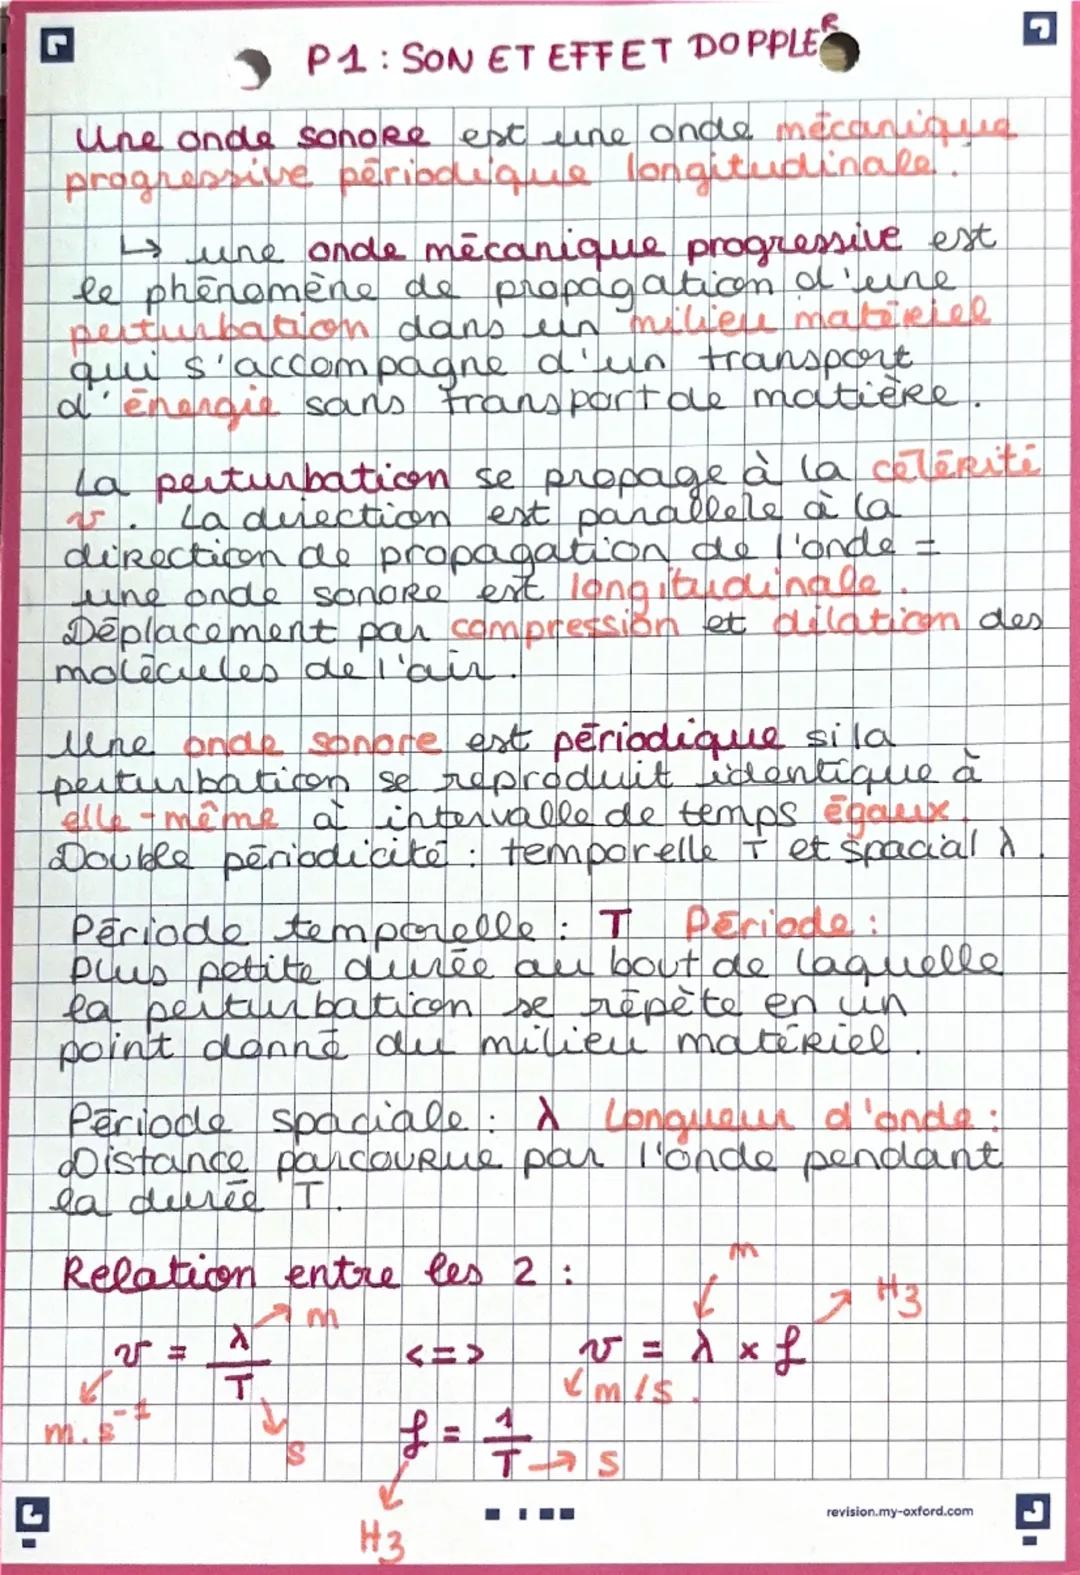 P1 : SON ET EFFET DOPPLER
Une onde sonore est une onde mécanique
progressive périodique longitudinale.
↳ une onde mécanique progressive est
le phénomène de propagation d'une
perturbation dans un milieu matériel
qui s'accompagne d'un transport
d'énergie sans transport de matière.
La perturbation se propage à la célérité
v. La direction est parallele à la
direction de propagation de l'onde =
une onde sonore est longitudinale.
Déplacement par compression et dilation des
molécules de l'air.
Une onde sonore est périodique si la
perturbation se reproduit identique à
elle-même à intervalle de temps égaux.
Double périodicité : temporelle T et spacial λ.
Période temporelle : T Période :
Plus petite durée au bout de laquelle
la perturbation se répète en un
point donné du milieu matériel.
Période spaciale : λ Longueur d'onde :
Distance parcourue par l'onde pendant
la durée T.
Relation entre les 2 :
v = λ/T <=> v = λ × f
m.s⁻¹ m s m/s m Hz
f = 1/T
Hz s
revision.my-oxford.com